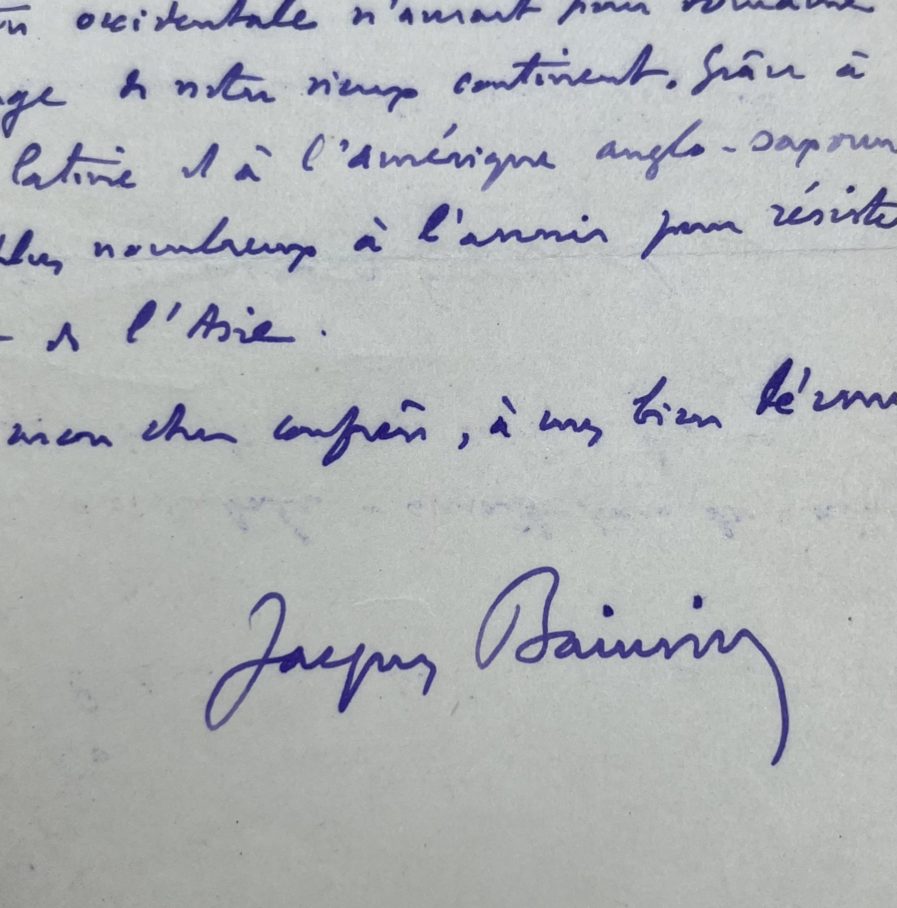 occidentale n'aurait pour domaine
de notre vieux continent. Grâce à
latine et à l'amérique anglo-saxonn
nombreux à l'avenir pour résiste
de l'Asie.
mon cher confrère, à mes bien dévoué
Jacques Bainville